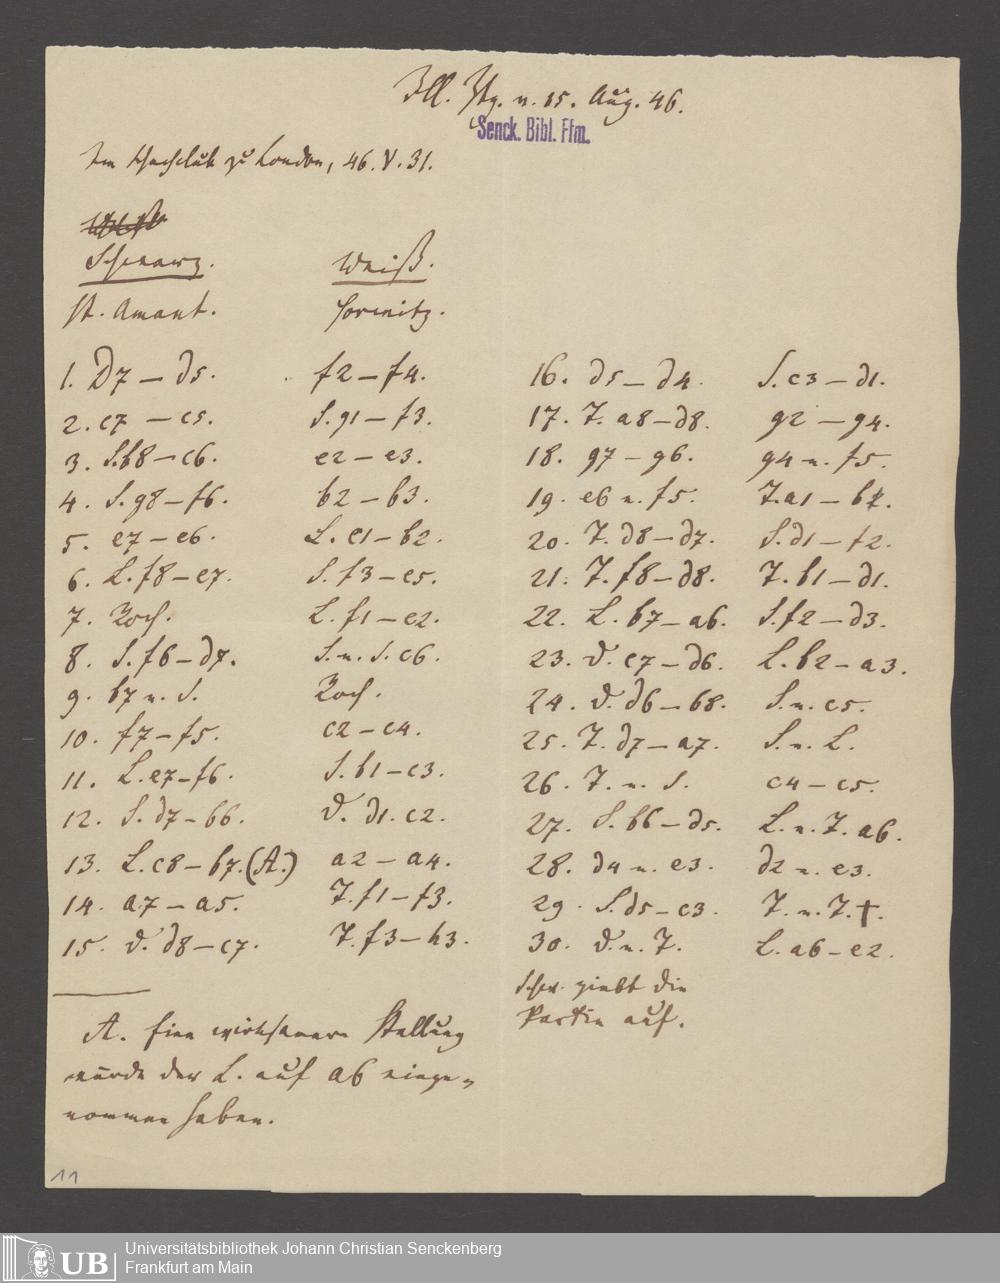 Ill. Ztg. v. 15. Aug. 46.
Senck. Bibl. Ffm.
Im Schachclub zu London, 46. V. 31.
Schwarz. Weiß.
St. Amant. Horwitz.
1. D7 — d5. f2 — f4.
2. c7 — c5. S. g1 — f3.
3. S. b8 — c6. e2 — e3.
4. S. g8 — f6. b2 — b3.
5. e7 — e6. L. c1 — b2.
6. L. f8 — e7. S. f3 — e5.
7. Roch. L. f1 — e2.
8. S. f6 — d7. S. n. S. c6.
9. b7 n. S. Roch.
10. f7 — f5. c2 — c4.
11. L. e7 — f6. S. b1 — c3.
12. S. d7 — b6. D. d1. c2.
13. L. c8 — b7. (A.) a2 — a4.
14. a7 — a5. T. f1 — f3.
15. D. d8 — c7. T. f3 — h3.
A. Eine wirksamere Stellung
würde der L. auf a6 einge-
nommen haben.
16. d5 — d4. S. c3 — d1.
17. T. a8 — d8. g2 — g4.
18. g7 — g6. g4 n. f5.
19. e6 n. f5. T. a1 —
20. T. d8 — d7. S. d1 — f2.
21. T. f8 — d8. T. b1 — d1.
22. L. b7 — a6. S. f2 — d3.
23. D. c7 — d6. L. b2 — a3.
24. D. d6 — b8. S. n. c5.
25. T. d7 — a7. S. n. L.
26. T. n. S. c4 — c5.
27. S. b6 — d5. L. n. T. a6.
28. d4 n. e3. d2 n. e3.
29. S. d5 — c3. T. n. T. †.
30. D. n. T. L. a6 — e2.
Schw. giebt die
Partie auf.
11
UB
Universitätsbibliothek Johann Christian Senckenberg
Frankfurt am Main